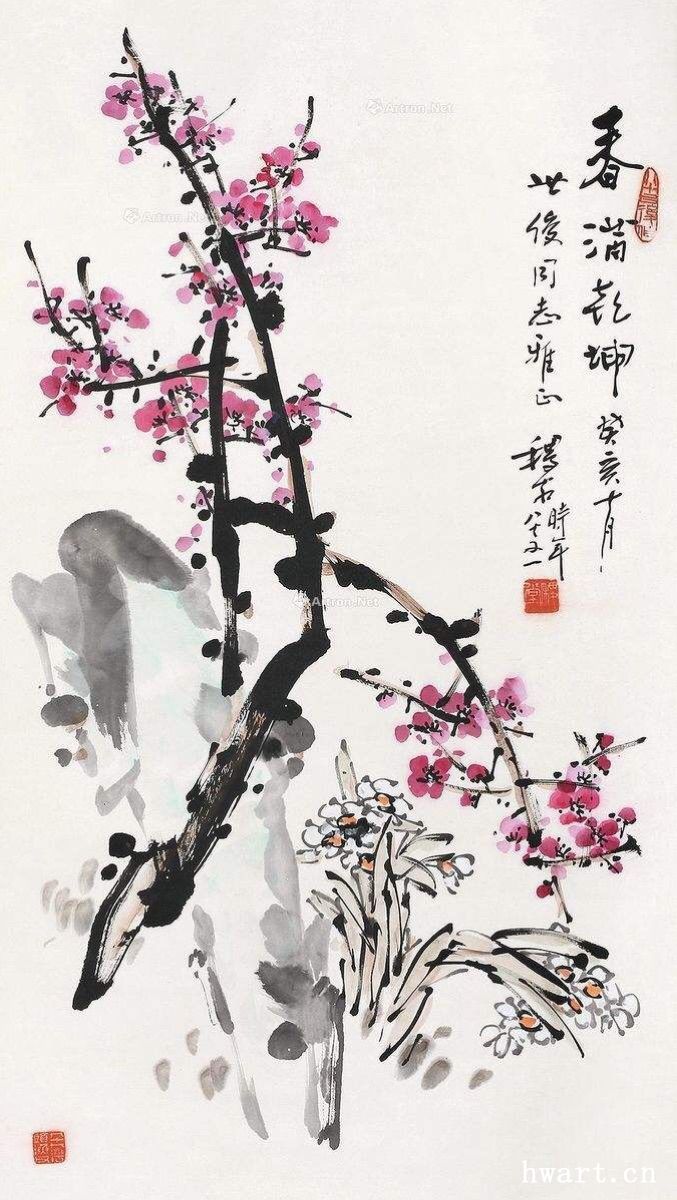 春满乾坤 癸亥十月
俊同志雅正
時年八十又一
Artron.Net
Artron.Net
Artron.Net
hwart.cn